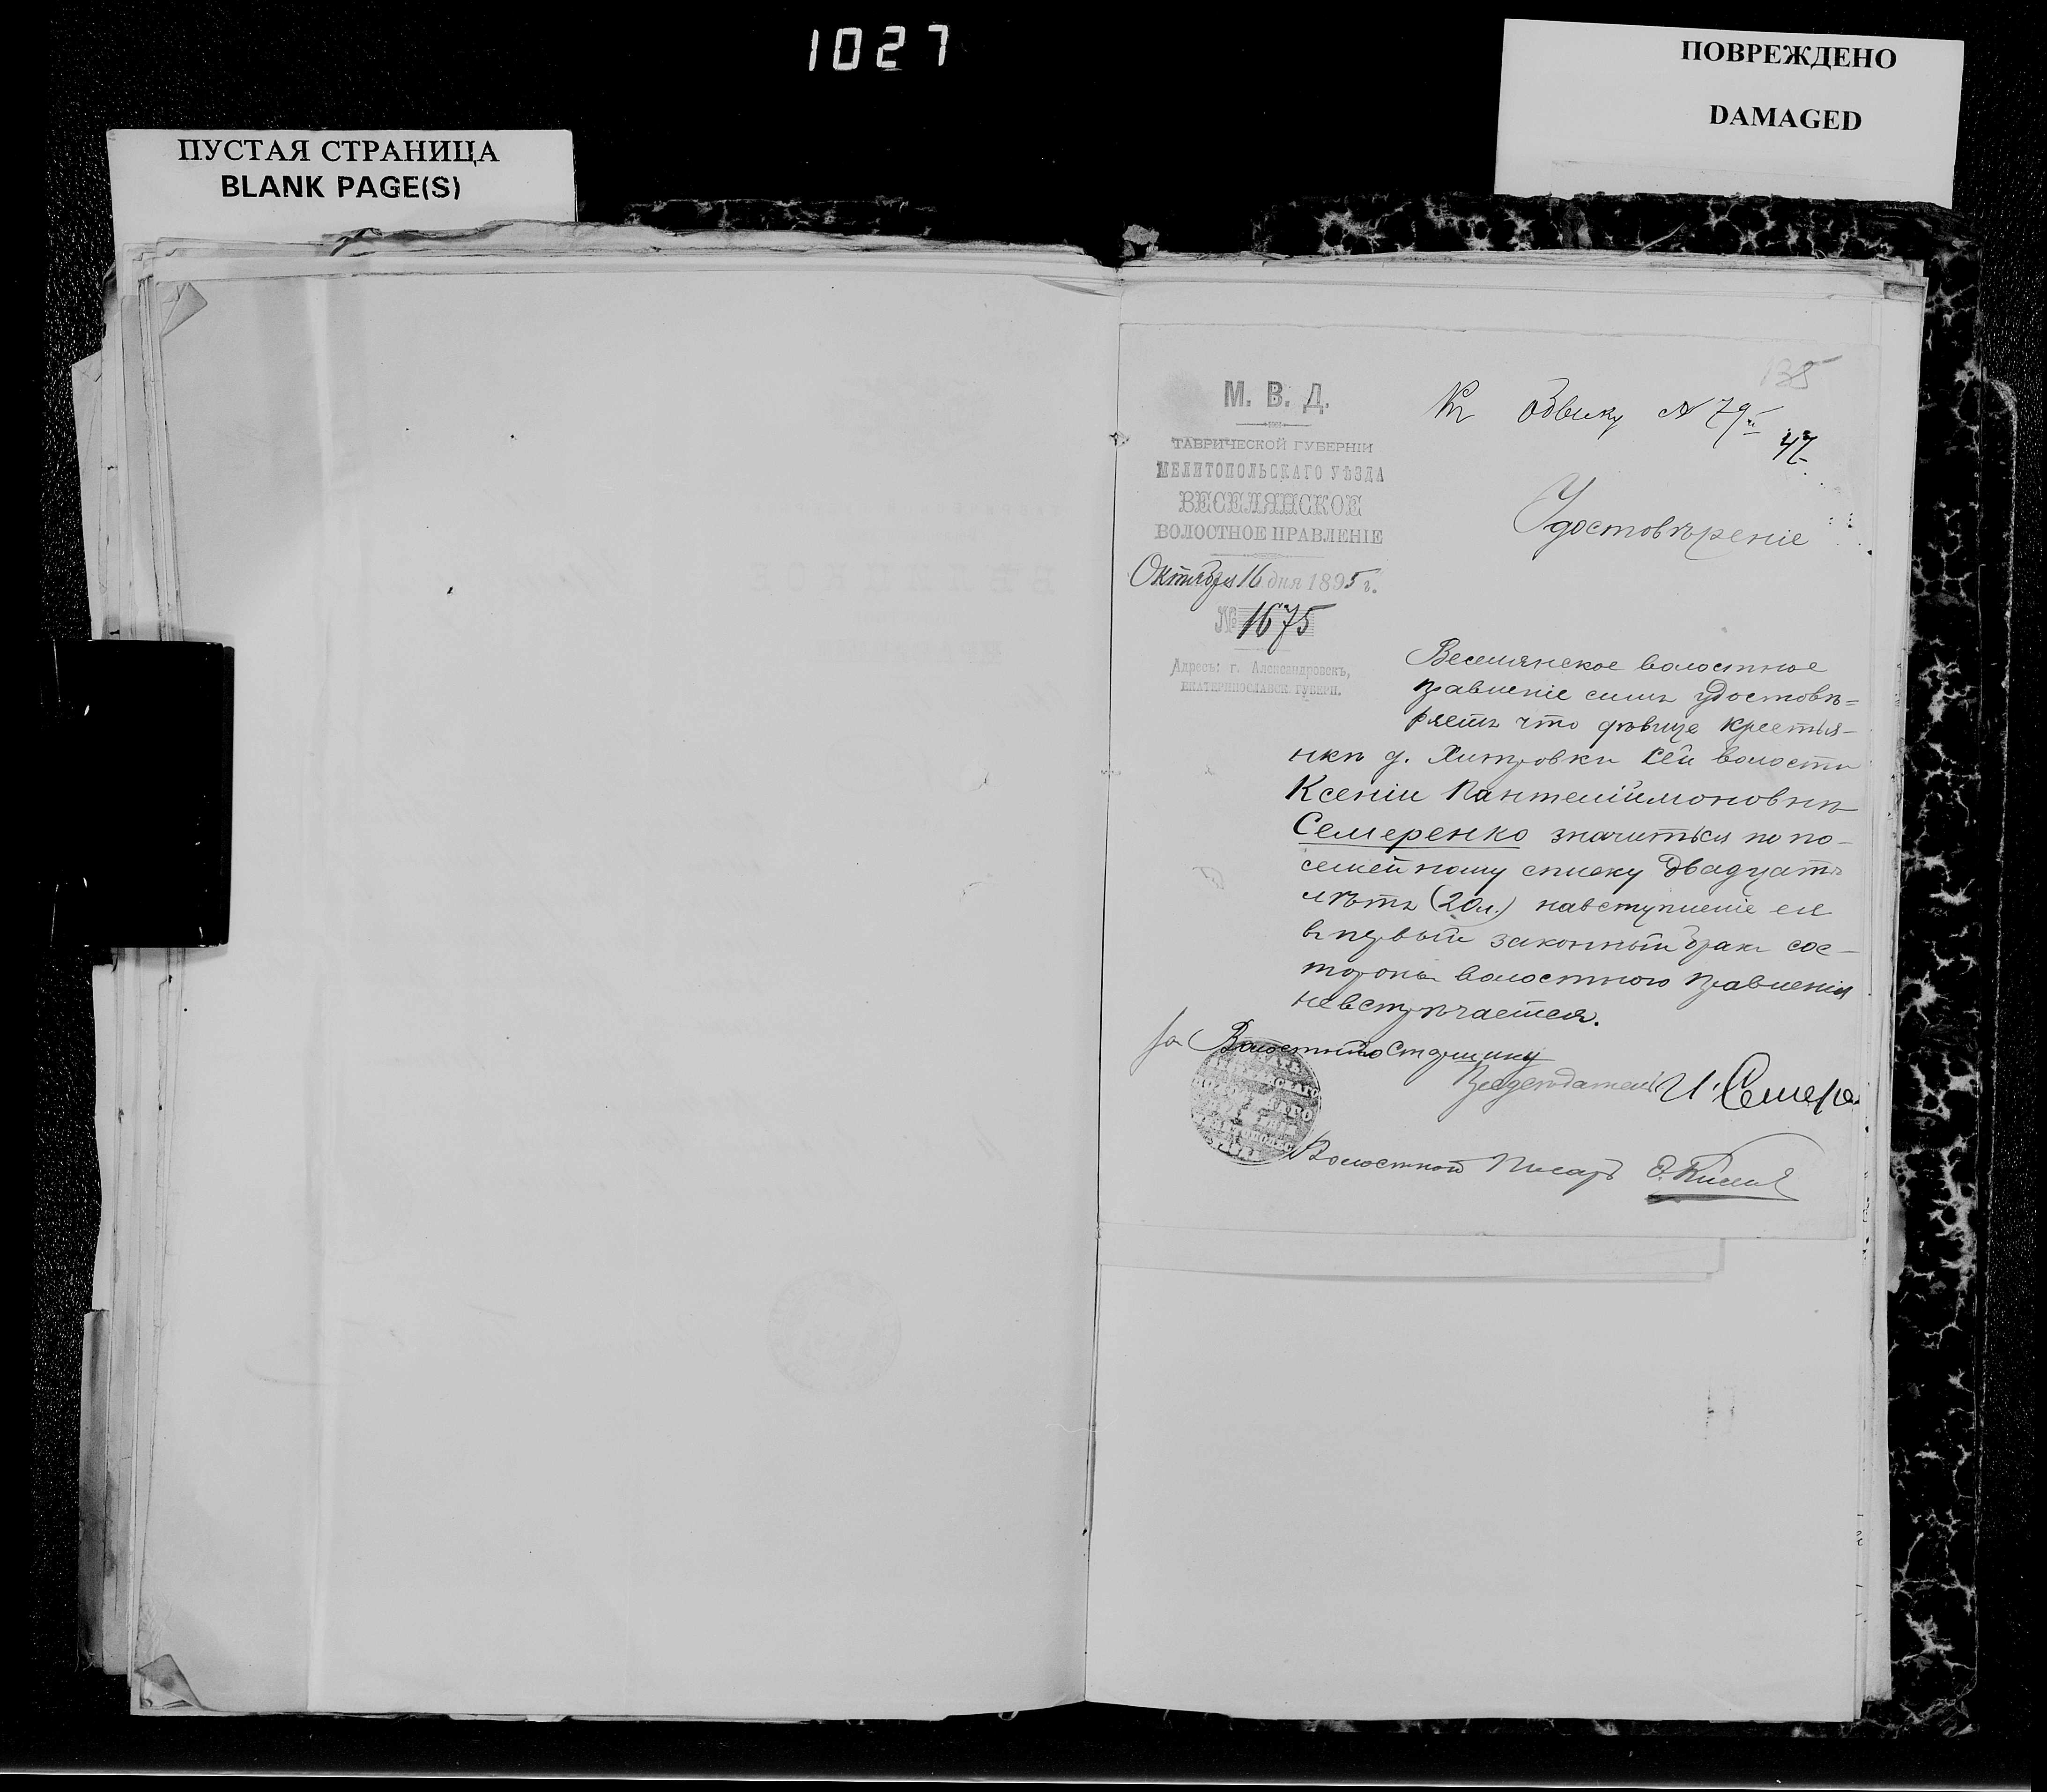 1027
ПОВРЕЖДЕНО
DAMAGED
ПУСТАЯ СТРАНИЦА
BLANK PAGE(S)
135
М. В. Д.
ТАВРИЧЕСКОЙ ГУБЕРНІИ
МЕЛИТОПОЛЬСКАГО УѢЗДА
ВЕСЕЛЯНСКОЕ
ВОЛОСТНОЕ ПРАВЛЕНІЕ
Октября 16 дня 1895 г.
№ 1675
Адресъ: г. Александровскъ,
ЕКАТЕРИНОСЛАВСК. ГУБЕРН.
Къ обыску № 79
47
Удостовѣреніе
Веселянское волостное
правленіе симъ удостовѣ=
ряетъ что дѣвице крестья-
нкѣ д. Хитровки сей волости
Ксеніи Пантелiимоновнѣ
Семеренко значиться по по-
семейному списку двадцать
лѣтъ (20 л.) навступленіе ея
въ первый законный бракъ сос-
тороны волостного правленія
невстрѣчается.
за Волостного Старшину
Председатель И. Семере
Волостной Писарь